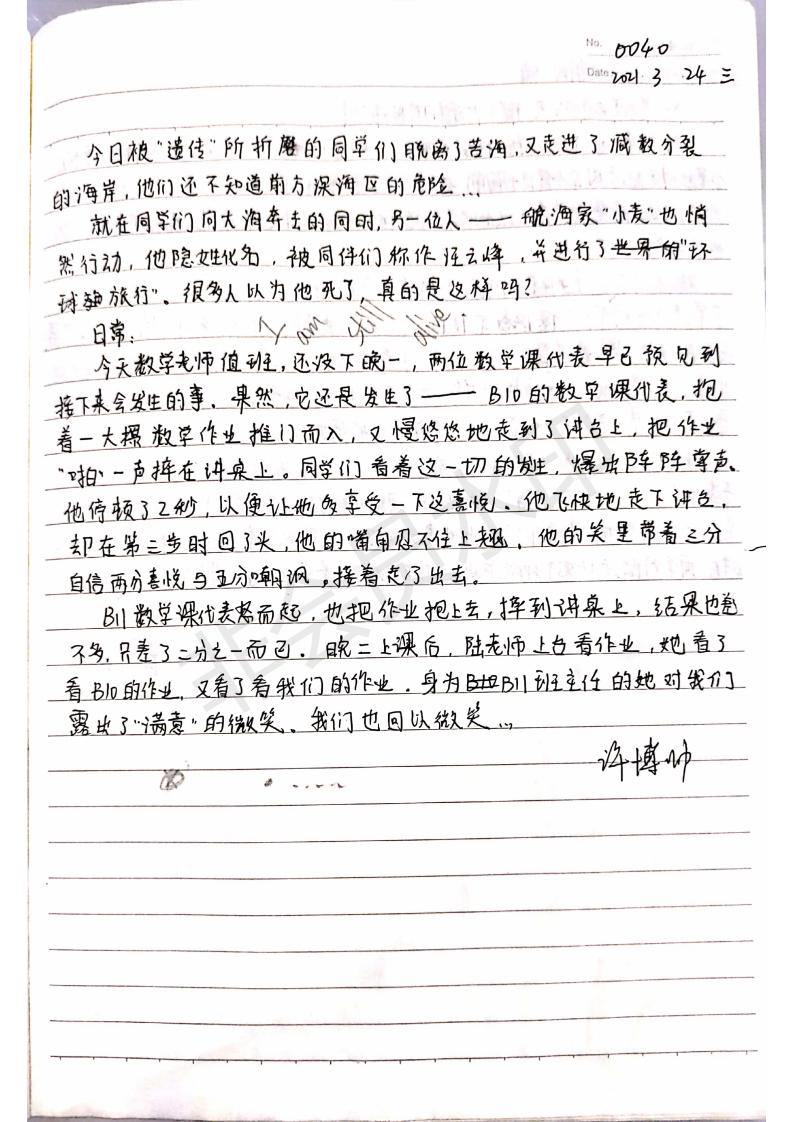 No. 0040
Date 2021 3 24 三
今日被"遗传"所折磨的同学们脱离了苦海,又走进了减数分裂
的海岸,他们还不知道前方深海区的危险...
就在同学们向大海奔去的同时,另一位人——航海家"小麦"也悄
然行动,他隐姓化名,被同伴们称作汪云峰,并进行了世界的"环
球旅行"。很多人以为他死了,真的是这样吗?
I am still alive.
日常:
今天数学老师值班,还没下晚一,两位数学课代表早已预见到
接下来会发生的事。果然,它还是发生了——B10的数学课代表,抱
着一大摞数学作业推门而入,又慢悠悠地走到了讲台上,把作业
"啪"一声摔在讲桌上。同学们看着这一切的发生,爆出阵阵掌声。
他停顿了2秒,以便让他多享受一下这喜悦。他飞快地走下讲台,
却在第三步时回了头,他的嘴角忍不住上翘,他的笑里带着三分
自信两分喜悦与五分嘲讽。接着走了出去。
B11数学课代表怒而起,也把作业抱上去,摔到讲桌上,结果也差
不多,只差了二分之一而已。晚二上课后,陆老师上台看作业,她看了
看B10的作业,又看了看我们的作业.身为B11班主任的她对我们
露出了"满意"的微笑、我们也回以微笑...
许博帅
非会员水印